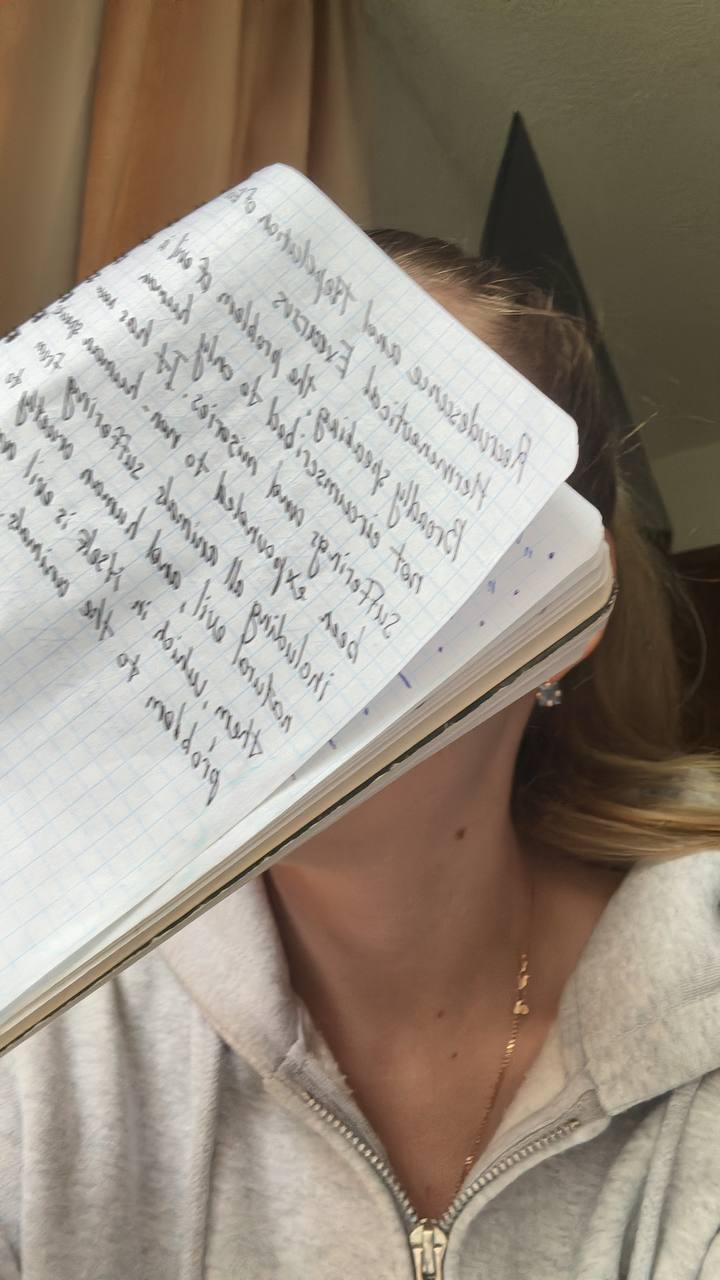 Recrudesance and
Hermeneutical Excursus
Broadly speaking, the problem of evil
not circumscribed to only human
sufferings and miseries. It has now
been expounded to non-human
including all animals suffering from
natural evil, and human cruelty to
them, which in itself is evil
problem to the animals.